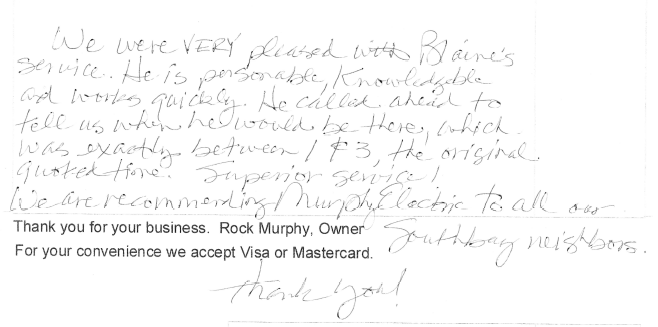 We were VERY pleased with Blaine's
service. He is personable, Knowledgable
and works quickly. He called ahead to
tell us when he would be there, which
was exactly between 1 & 3, the original
quoted time. Superior service!
We are recommending Murphy Electric to all our
Thank you for your business. Rock Murphy, Owner
Southbay neighbors.
For your convenience we accept Visa or Mastercard.
Thank you!